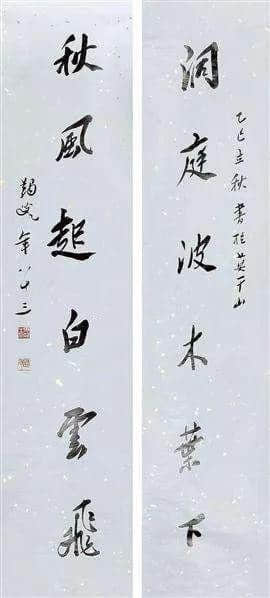 洞庭波木葉下
乙巳立秋書於莫干山
秋風起白雲飛
年八十三